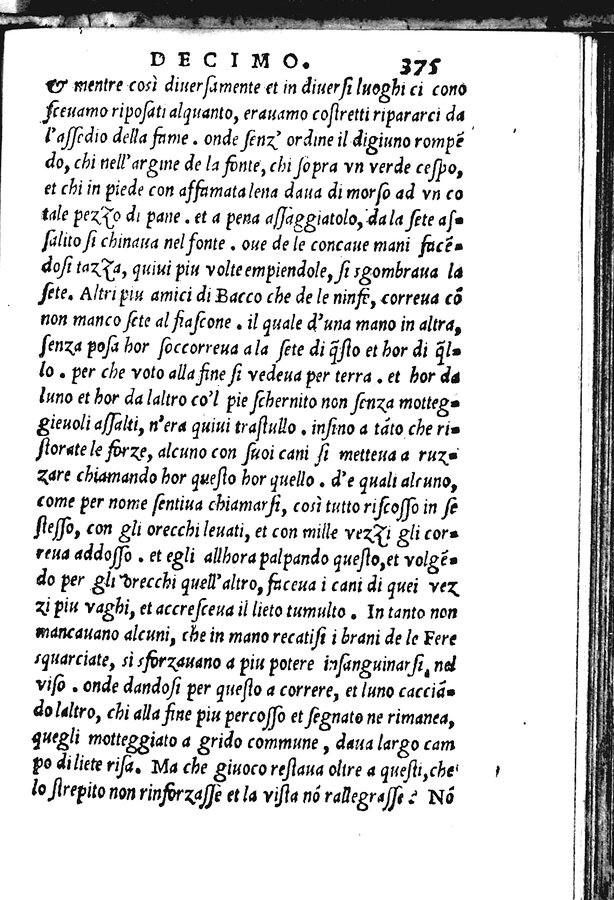 DECIMO. 375
& mentre così diuersamente et in diuersi luoghi ci cono
sceuamo riposati alquanto, erauamo costretti ripararci da
l'assedio della fame. onde senz' ordine il digiuno rompē
do, chi nell'argine de la fonte, chi sopra vn verde cespo,
et chi in piede con affamata lena daua di morso ad vn co
tale pezzo di pane. et a pena assaggiatolo, da la sete as-
salito si chinaua nel fonte. oue de le concaue mani facē-
dosi tazza, quiui piu volte empiendole, si sgombraua la
sete. Altri piu amici di Bacco che de le ninfe, correua cō
non manco sete al fiascone. il quale d'una mano in altra,
senza posa hor soccorreua a la sete di q̃sto et hor di q̃l-
lo. per che voto alla fine si vedeua per terra. et hor da
luno et hor da laltro co'l pie schernito non senza motteg-
gieuoli assalti, n'era quiui trastullo. insino a tāto che ri-
storate le forze, alcuno con suoi cani si metteua a ruz-
zare chiamando hor questo hor quello. d'e quali alcuno,
come per nome sentiua chiamarsi, così tutto riscosso in se
stesso, con gli orecchi leuati, et con mille vezzi gli cor-
reua addosso. et egli allhora palpando questo, et volgē-
do per gli orecchi quell'altro, faceua i cani di quei vez
zi piu vaghi, et accresceua il lieto tumulto. In tanto non
mancauano alcuni, che in mano recatisi i brani de le Fere
squarciate, si sforzauano a piu potere insanguinarsi, nel
viso. onde dandosi per questo a correre, et luno cacciā-
do laltro, chi alla fine piu percosso et segnato ne rimanea,
quegli motteggiato a grido commune, daua largo cam
po di liete risa. Ma che giuoco restaua oltre a questi, che
lo strepito non rinforzasse et la vista nō rallegrasse? Nō